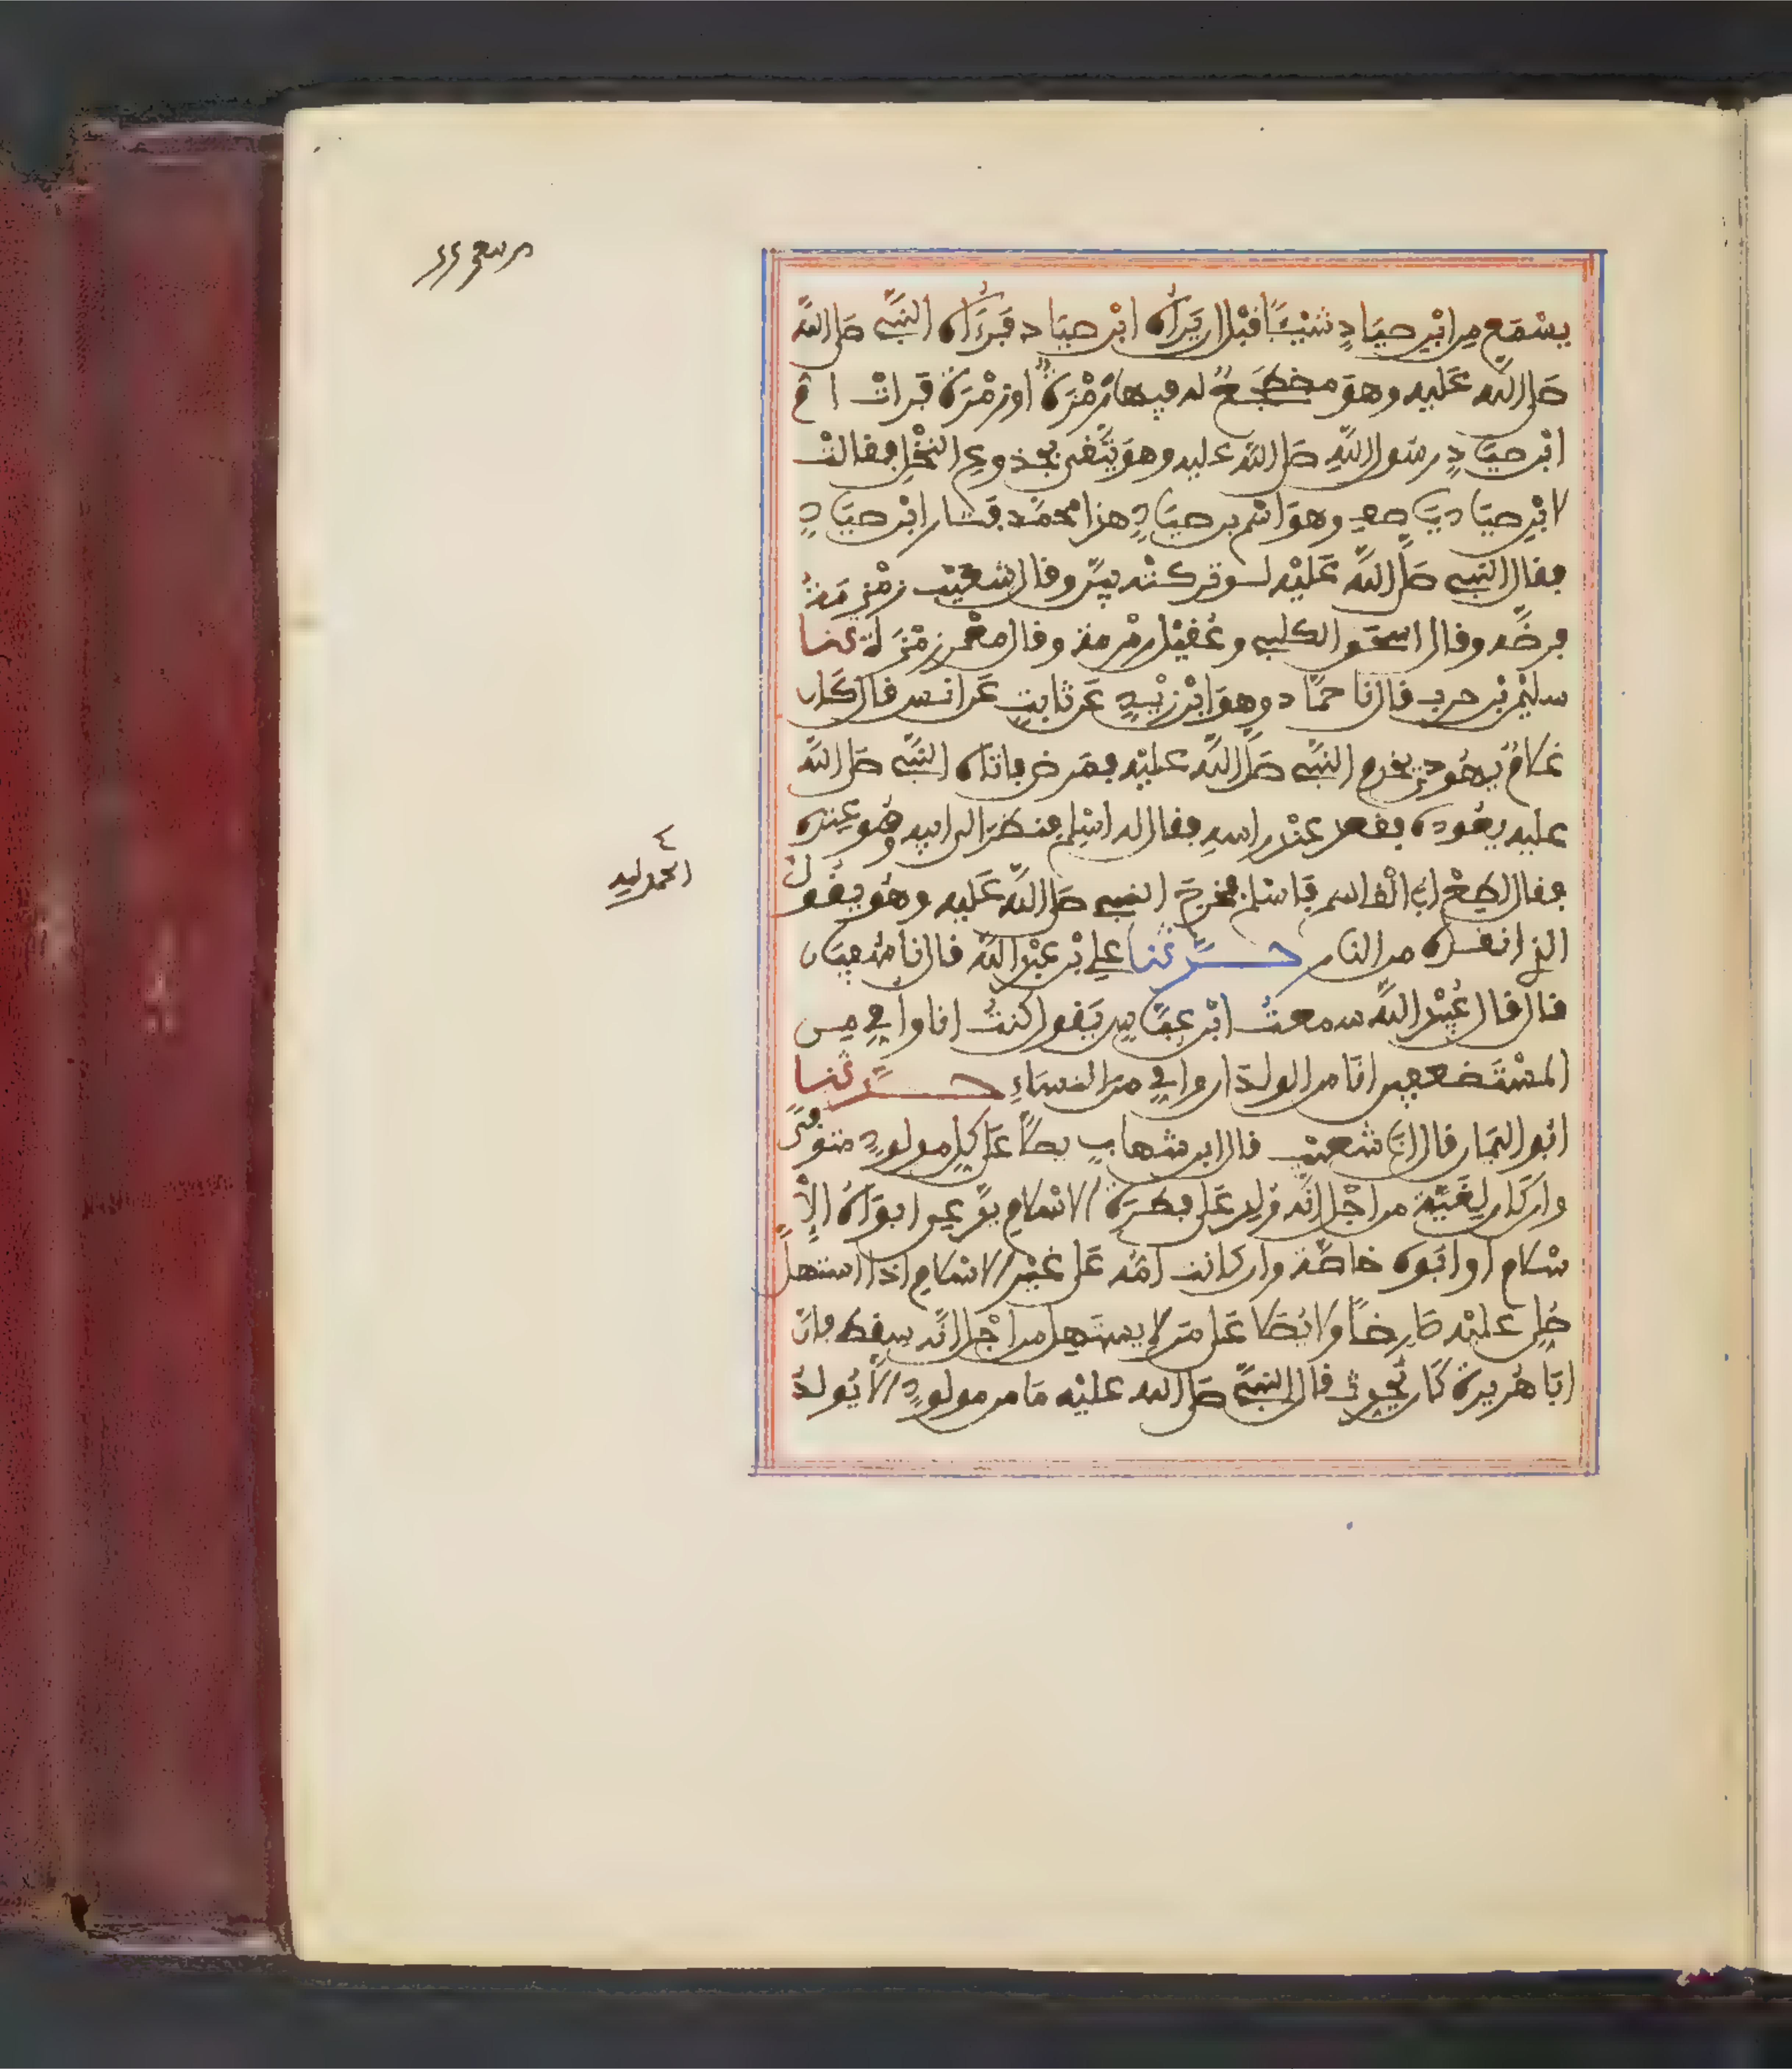 يسمع من ابن صياد شيئا قبل ان يراه ابن صياد فرءاه النبي صلى الله
صلى الله عليه وهو مضطجع له فيها رمزة او زمرة فرات ام
ابن صياد رسول الله صلى الله عليه وهو يتقي بجذوع النخل فقالت
لابن صياد يا صاف وهو اسم بن صياد هذا محمد فثار ابن صياد
فقال النبي صلى الله عليه لو تركته بين وقال شعيب زمزمة
فرضه وقال اسحق الكلبي وعقيل رمرمة وقال معمر رمزة حدثنا
سليمن بن حرب قال نا حماد وهو ابن زيد عن ثابت عن انس قال كان
غلام يهودي يخدم النبي صلى الله عليه فمرض فاتاه النبي صلى الله
عليه يعوده فقعد عند راسه فقال له اسلم فنظر الى ابيه وهو عنده
فقال اطع ابا القاسم فاسلم فخرج النبي صلى الله عليه وهو يقول
الحمد لله
الذي انقذه من النار حدثنا علي بن عبد الله قال نا سفيان
قال قال عبيد الله سمعت ابن عباس يقول كنت انا وامي من
المستضعفين انا من الولدان وامي من النساء حدثنا
ابو اليمان قال انا شعيب قال ابن شهاب يصلى على كل مولود متوفى
وان كان لغية من اجل انه ولد على فطرة الاسلام يدعي ابواه الا
سلام او ابوه خاصة وان كانت امه على غير الاسلام اذا استهل
صلي عليه صارخا ولا يصلا على من لا يستهل من اجل انه سقط فان
ابا هريرة كان يحدث قال النبي صلى الله عليه ما من مولود الا يولد